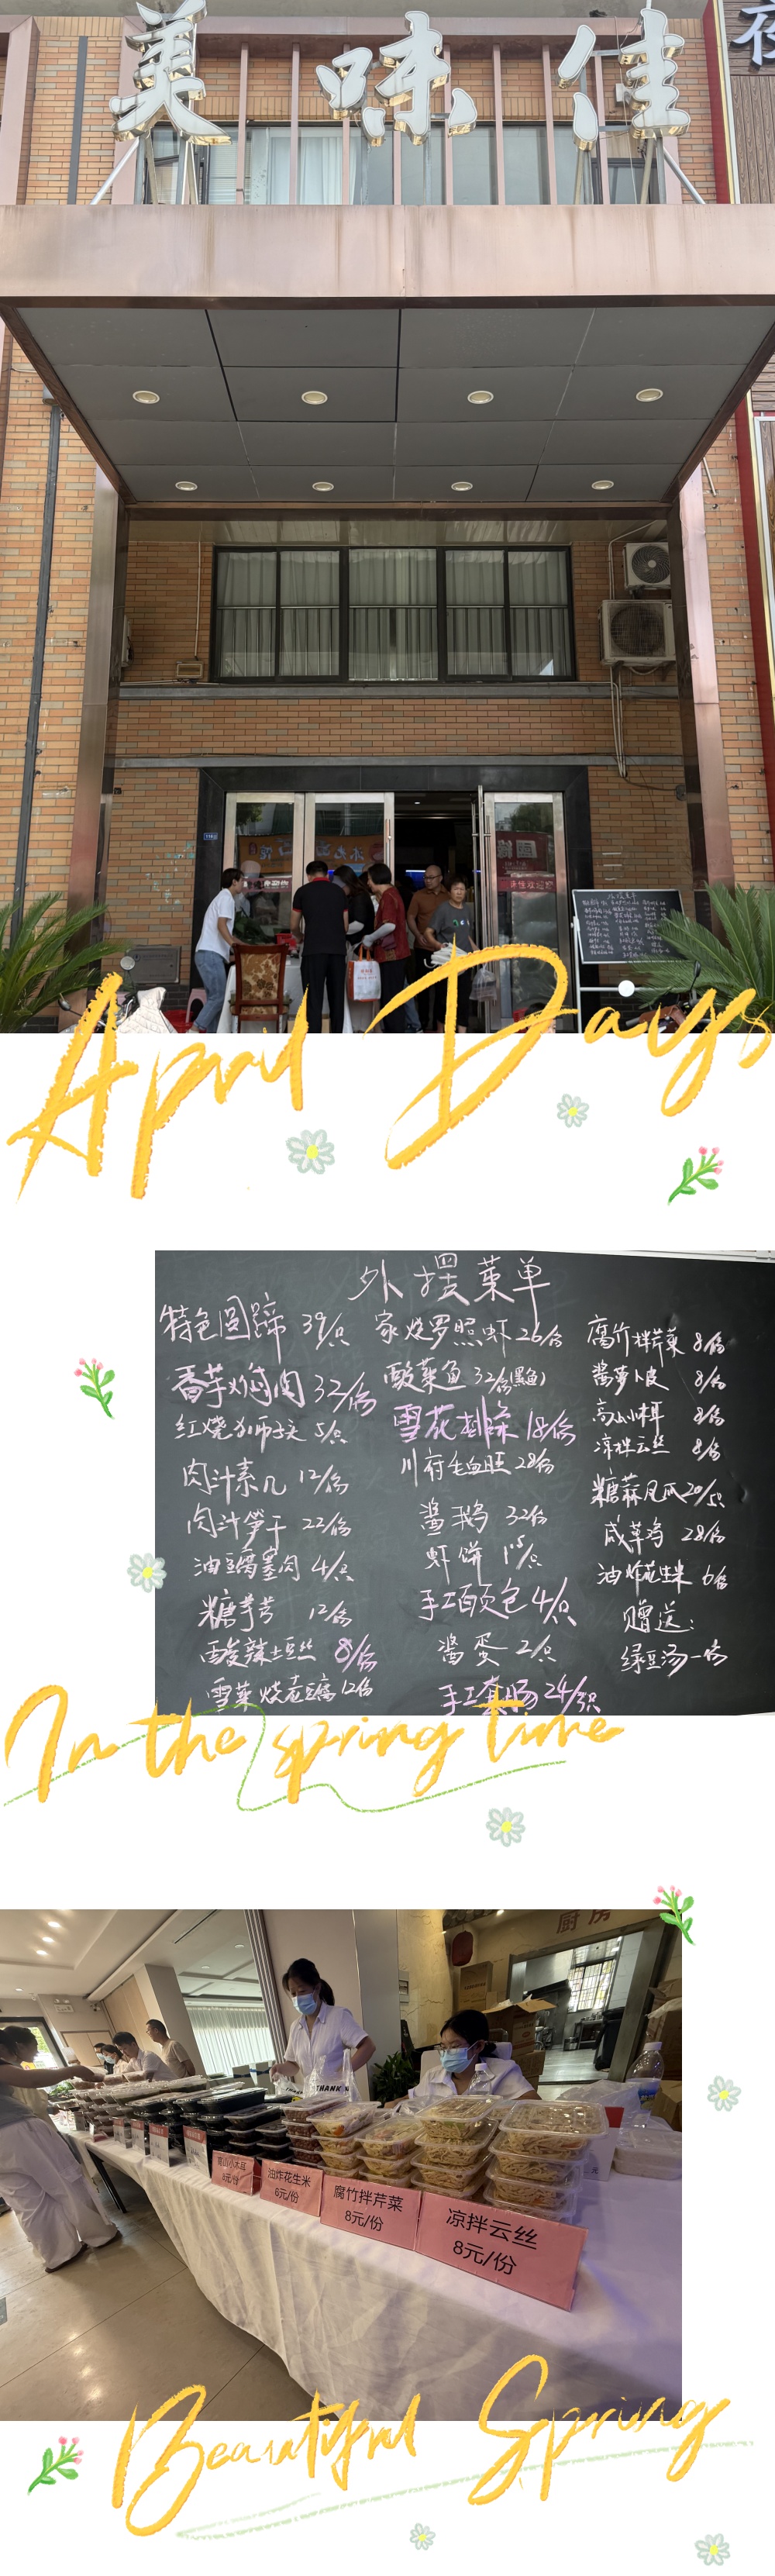 美味佳
夜
外摆菜单
April Days
外摆菜单
特色圆蹄 39/只
香芋焖肉 32/份
红烧狮子头 5/只
肉汁素几 12/份
肉汁笋干 22/份
油豆腐塞肉 4/只
糖芋艿 12/份
酸辣土豆丝 8/份
雪菜烧老豆腐 12份
家烧罗照虾 26/份
酸菜鱼 32/份(黑鱼)
雪花排条 18/份
川府毛血旺 28/份
酱鹅 32/份
虾饼 15/只
手工百叶包 4/只
酱蛋 2/只
腐竹拌芹菜 8/份
酱萝卜皮 8/份
高山小木耳 8/份
凉拌云丝 8/份
糖蒜凤爪 20/5只
咸草鸡 28/份
油炸花生米 6/份
赠送:
绿豆汤一份
In the spring time
厨房
THANK
高山小木耳
8元/份
油炸花生米
6元/份
腐竹拌芹菜
8元/份
凉拌云丝
8元/份
Beautiful Spring